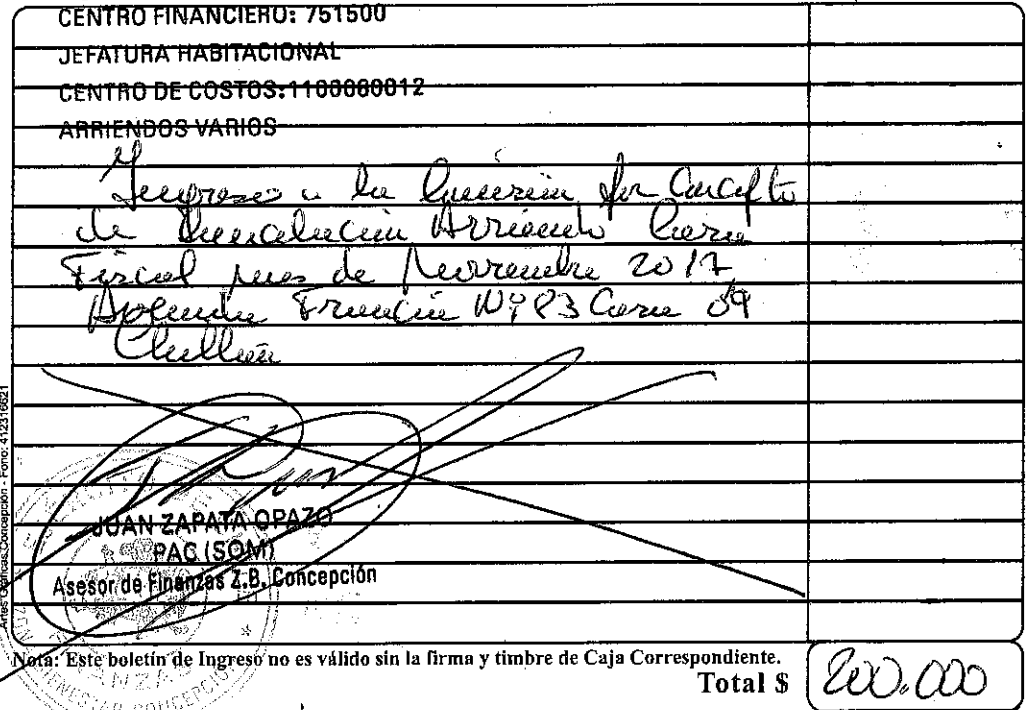 CENTRO FINANCIERO: 751500
JEFATURA HABITACIONAL
CENTRO DE COSTOS:1100000012
ARRIENDOS VARIOS
Ingreso a la por Concepto
de Arriendo Casa
Fiscal mes de Noviembre 2017
Francia N° 83 Casa 09
Chillán
JUAN ZAPATA OPAZO
PAC (SOM)
Asesor de Finanzas Z.B. Concepción
Artes Gráficas Concepción - Fono: 412316621
Nota: Este boletín de Ingreso no es válido sin la firma y timbre de Caja Correspondiente.
Total $ 200.000